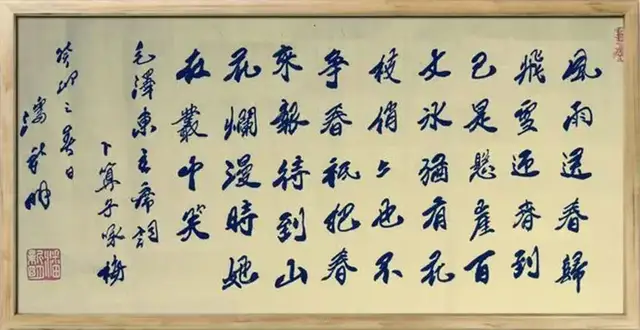 風雨送春歸
飛雪迎春到
已是懸崖百
丈冰猶有花
枝俏々也不
争春祇把春
來報待到山
花爛漫時她
在叢中笑
毛澤東主席詞
卜算子咏梅
癸卯之春日
潘新明